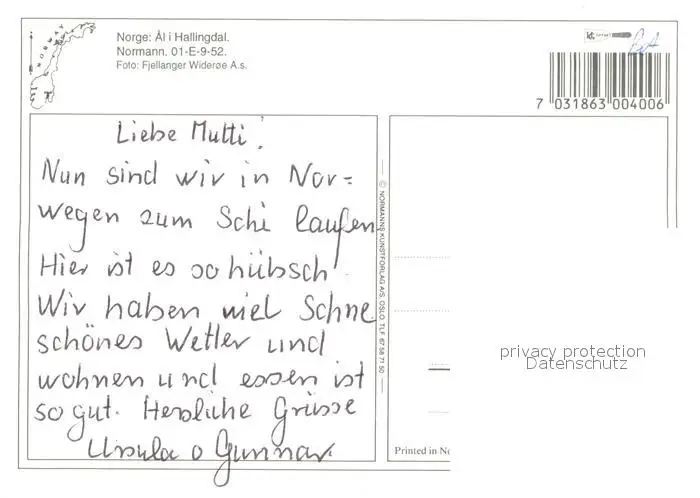 NORWAY
Norge: Ål i Hallingdal.
Normann. 01-E-9-52.
Foto: Fjellanger Widerøe A.s.
7 031863 004006
Liebe Mutti!
Nun sind wir in Nor=
wegen zum Schi laufen
Hier ist es so hübsch
Wir haben viel Schne
schönes Wetter und
wohnen und essen ist
so gut. Herzliche Grüsse
Ursula o Gunnar.
© NORMANNS KUNSTFORLAG A/S, OSLO. TLF 67 58 71 50
privacy protection
Datenschutz
Printed in No